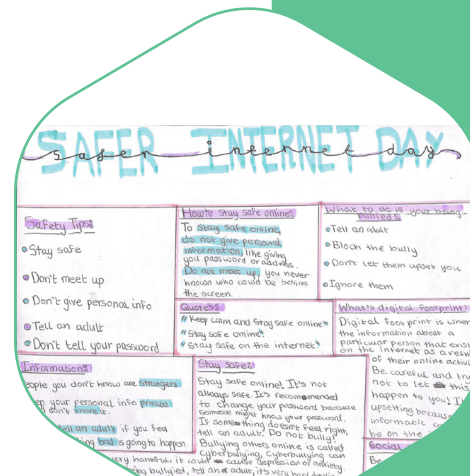 SAFER INTERNET DAY
safer internet day
Safety Tips:
Stay safe
Don't meet up
Don't give personal info
Tell an adult
Don't tell your password
How to stay safe online:
To stay safe online,
do not give personal
information, like giving
you password or address.
Do not meet up, you never
know who could be behind
the screen.
What to do if your being
bullied:
Tell an adult
Block the bully
Don't let them upset you
Ignore them
Quotes:
"Keep calm and stay safe online"
"Stay safe online"
"Stay safe on the internet"
What's digital footprint?
Digital footprint is
the information about a
particular person that
on the internet as a
of their online
Be careful and
not to let this
happen to you! I
upsetting because
be on the
Information:
people you don't know are strangers
your personal info private
don't share it.
tell an adult if you feel
bad is going to happen
Stay safe:
Stay safe online! It's not
always safe. It's recommended
to change your password because
someone might know your password.
If something doesn't feel right,
tell an adult. Do not bully!
Bullying others online is called
cyberbullying, cyberbullying can
cause depression or anxiety
Social
very harmful, it could cause
being bullied, tell an adult, it's very